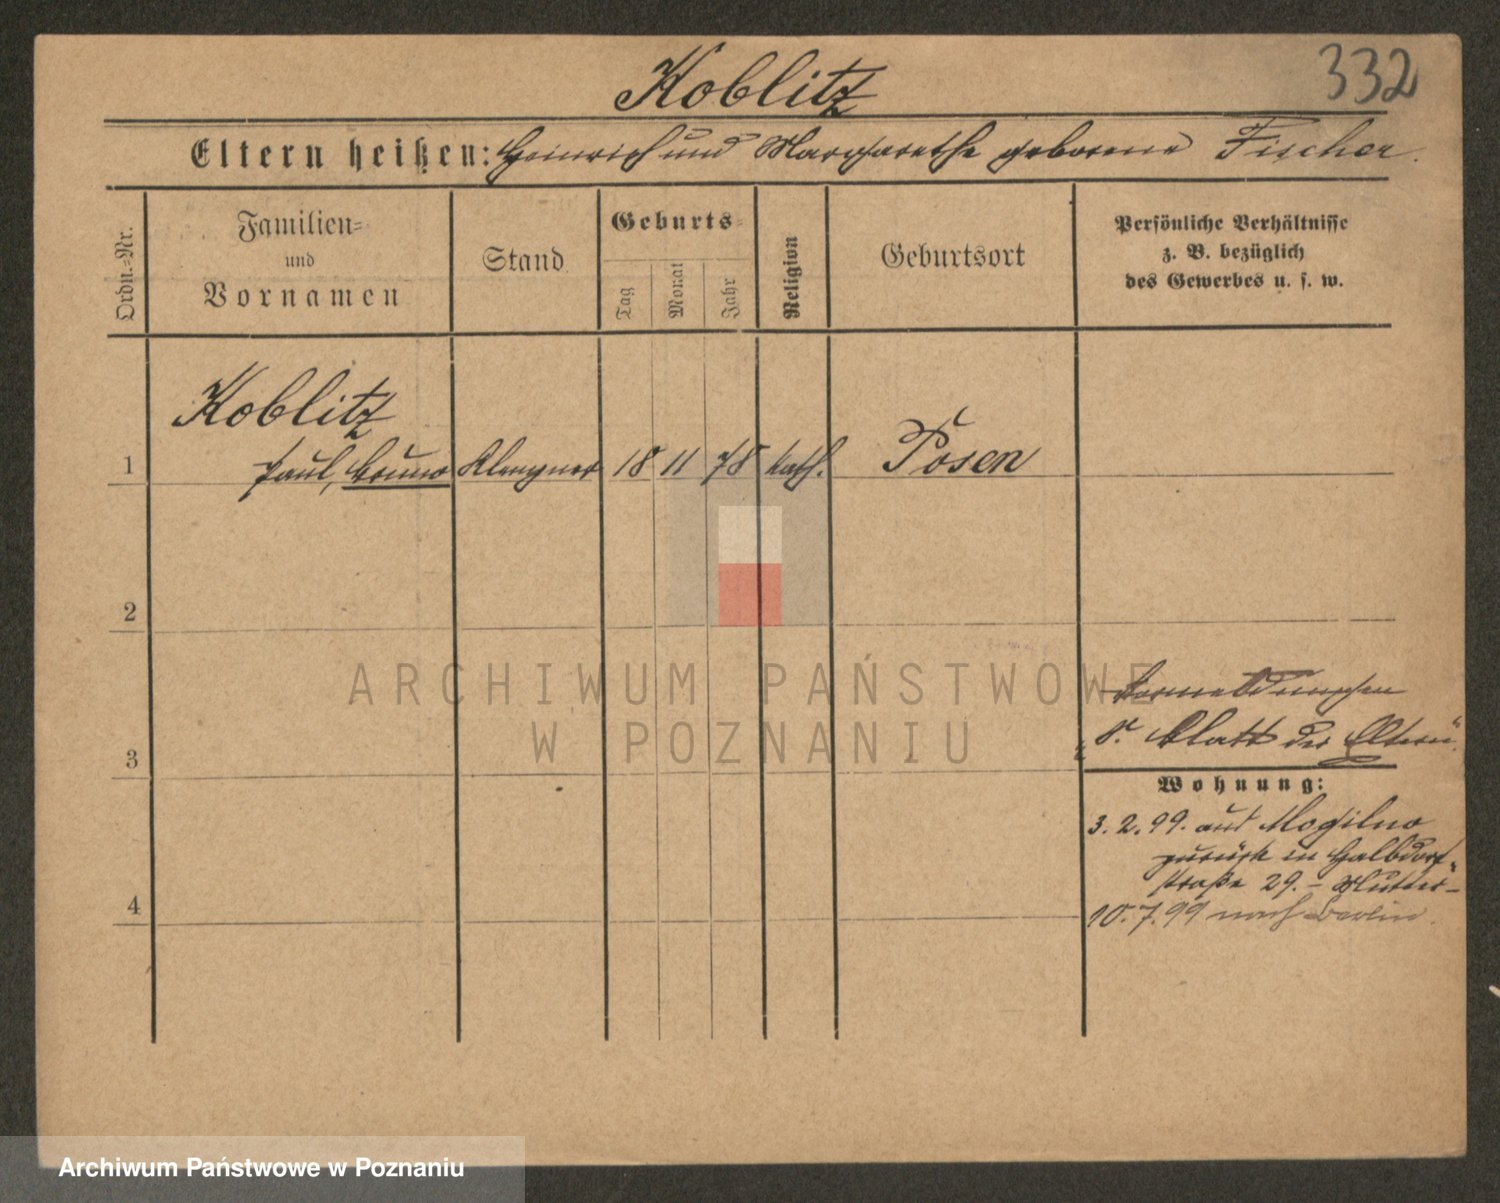 Koblitz
332
Eltern heißen: Heinrich und Margarethe geborene Fischer.
Ordn.-Nr.
Familien-
und
Vornamen
Stand
Geburts-
Tag
Monat
Jahr
Religion
Geburtsort
Persönliche Verhältnisse
z. B. bezüglich
des Gewerbes u. s. w.
Koblitz
1 Paul, Bruno Klempner 18 11 78 kath. Posen
2
ARCHIWUM PAŃSTWOWE
W POZNANIU
Vormeldungen
s. Blatt der Eltern
3
Wohnung:
3.2.99. aus Mogilno
zurück in Halbdorf-
straße 29. – Mutter –
4
10.7.99 nach Berlin.
Archiwum Państwowe w Poznaniu